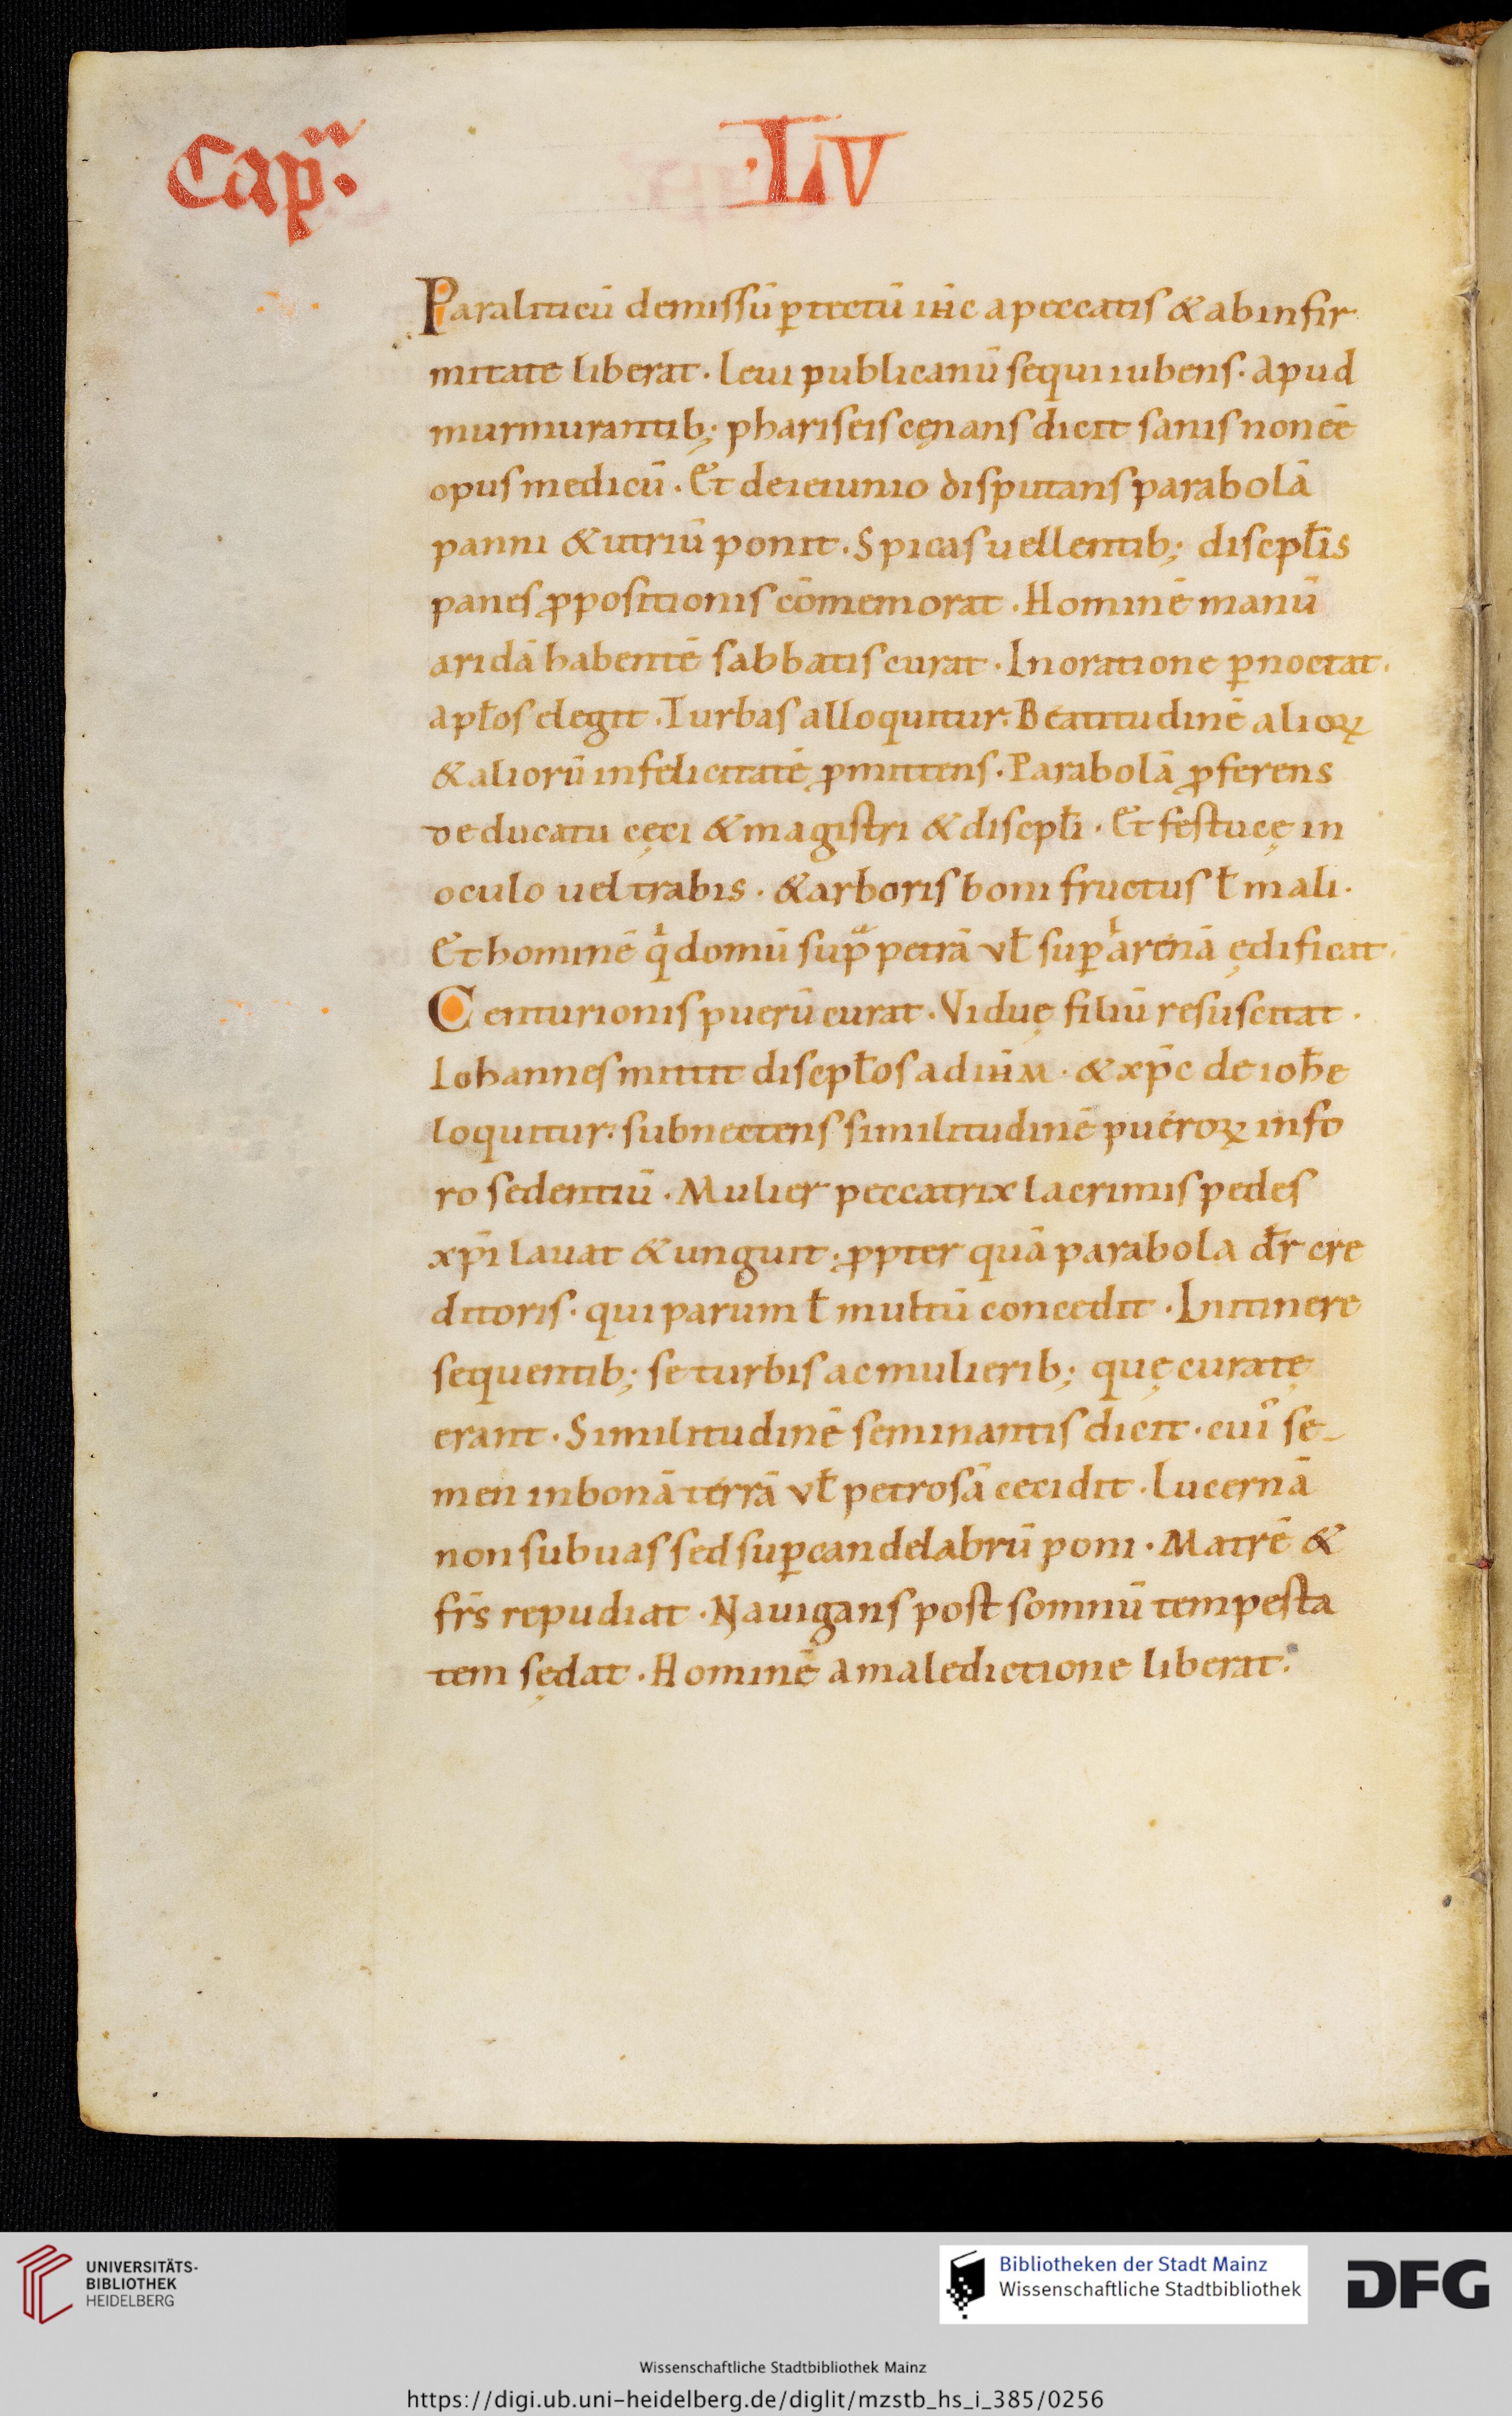 Cap̃.
·LV
Paraliticū demissū ꝑ tectū ih̅c a peccatis & ab infir
mitate liberat. Leui publicanū sequi iubens. apud
murmurantib; phariseis cęnans dicit sanis non eē
opus medicū. Et de ieiunio disputans parabolā
panni & utriū ponit. Spicas uellentib; discipl̄is
panes ꝓpositionis cōmemorat. Hominē manū
aridā habentē sabbatis curat. In oratione ꝑnoctat.
apl̄os elegit. Turbas alloquitur. Beatitudinē alioꝝ
& aliorū infelicitatē ꝓmittens. Parabolā ꝓferens
de ducatu cęci & magistri & discipl̄i. Et festucę in
oculo uel trabis. & arboris boni fructus ł mali.
Et hominē qͥ domū supͣ petrā vł suꝑ arenā ędificat.
Centurionis puerū curat. Viduę filiū resuscitat.
Iohannes mittit discipl̄os ad ih̅m. & xp̄c de ioh̅e
loquitur. subnectens similitudinē pueroꝝ in fo
ro sedentiū. Mulier peccatrix lacrimis pedes
xp̄i lauat & unguit. ꝓpter quā parabola dr̄ cre
ditoris. qui parum ł multū concedit. In itinere
sequentib; se turbis ac mulierib; quę curatę
erant. Similitudinē seminantis dicit. cuiꝰ se-
men in bonā terrā vł petrosā cecidit. Lucernā
non sub uas sed suꝑ candelabrū poni. Matrē &
fr̄s repudiat. Nauigans post somnū tempesta
tem sędat. Hominē a maledictione liberat.
UNIVERSITÄTS-
BIBLIOTHEK
HEIDELBERG
Bibliotheken der Stadt Mainz
Wissenschaftliche Stadtbibliothek
DFG
Wissenschaftliche Stadtbibliothek Mainz
https://digi.ub.uni-heidelberg.de/diglit/mzstb_hs_i_385/0256